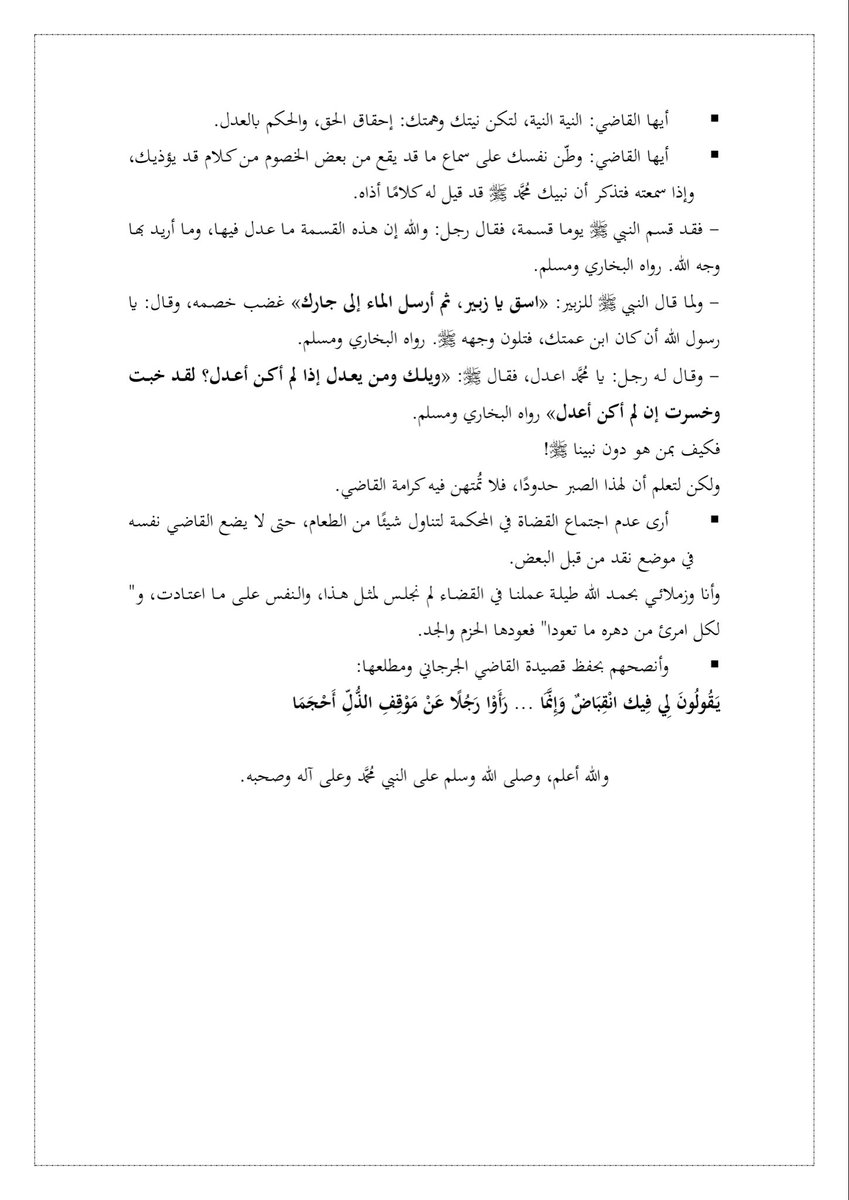 ▪ أيها القاضي: النية النية، لتكن نيتك وهمتك: إحقاق الحق، والحكم بالعدل.
▪ أيها القاضي: وطّن نفسك على سماع ما قد يقع من بعض الخصوم من كلام قد يؤذيك،
وإذا سمعته فتذكر أن نبيك مُحَّد ﷺ قد قيل له كلامًا أذاه.
– فقد قسم النبي ﷺ يوما قسمة، فقال رجل: والله إن هذه القسمة ما عدل فيها، وما أريد بها
وجه الله. رواه البخاري ومسلم.
– ولما قال النبي ﷺ للزبير: «اسق يا زبير، ثم أرسل الماء إلى جارك» غضب خصمه، وقال: يا
رسول الله أن كان ابن عمتك، فتلون وجهه ﷺ. رواه البخاري ومسلم.
– وقال له رجل: يا مُحَّد اعدل، فقال ﷺ: «ويلك ومن يعدل إذا لم أكن أعدل؟ لقد خبت
وخسرت إن لم أكن أعدل» رواه البخاري ومسلم.
فكيف بمن هو دون نبينا ﷺ!
ولكن لتعلم أن لهذا الصبر حدودًا، فلا تُمتهن فيه كرامة القاضي.
▪ أرى عدم اجتماع القضاة في المحكمة لتناول شيئًا من الطعام، حتى لا يضع القاضي نفسه
في موضع نقد من قبل البعض.
وأنا وزملائي بحمد الله طيلة عملنا في القضاء لم نجلس لمثل هذا، والنفس على ما اعتادت، و"
لكل امرئ من دهره ما تعودا" فعودها الحزم والجد.
▪ وأنصحهم بحفظ قصيدة القاضي الجرجاني ومطلعها:
يَقُولُونَ لِي فِيك انْقِبَاضٌ وَإِنَّمَا ... رَأَوْا رَجُلًا عَنْ مَوْقِفِ الذُّلِّ أَحْجَمَا
والله أعلم، وصلى الله وسلم على النبي مُحَّد وعلى آله وصحبه.